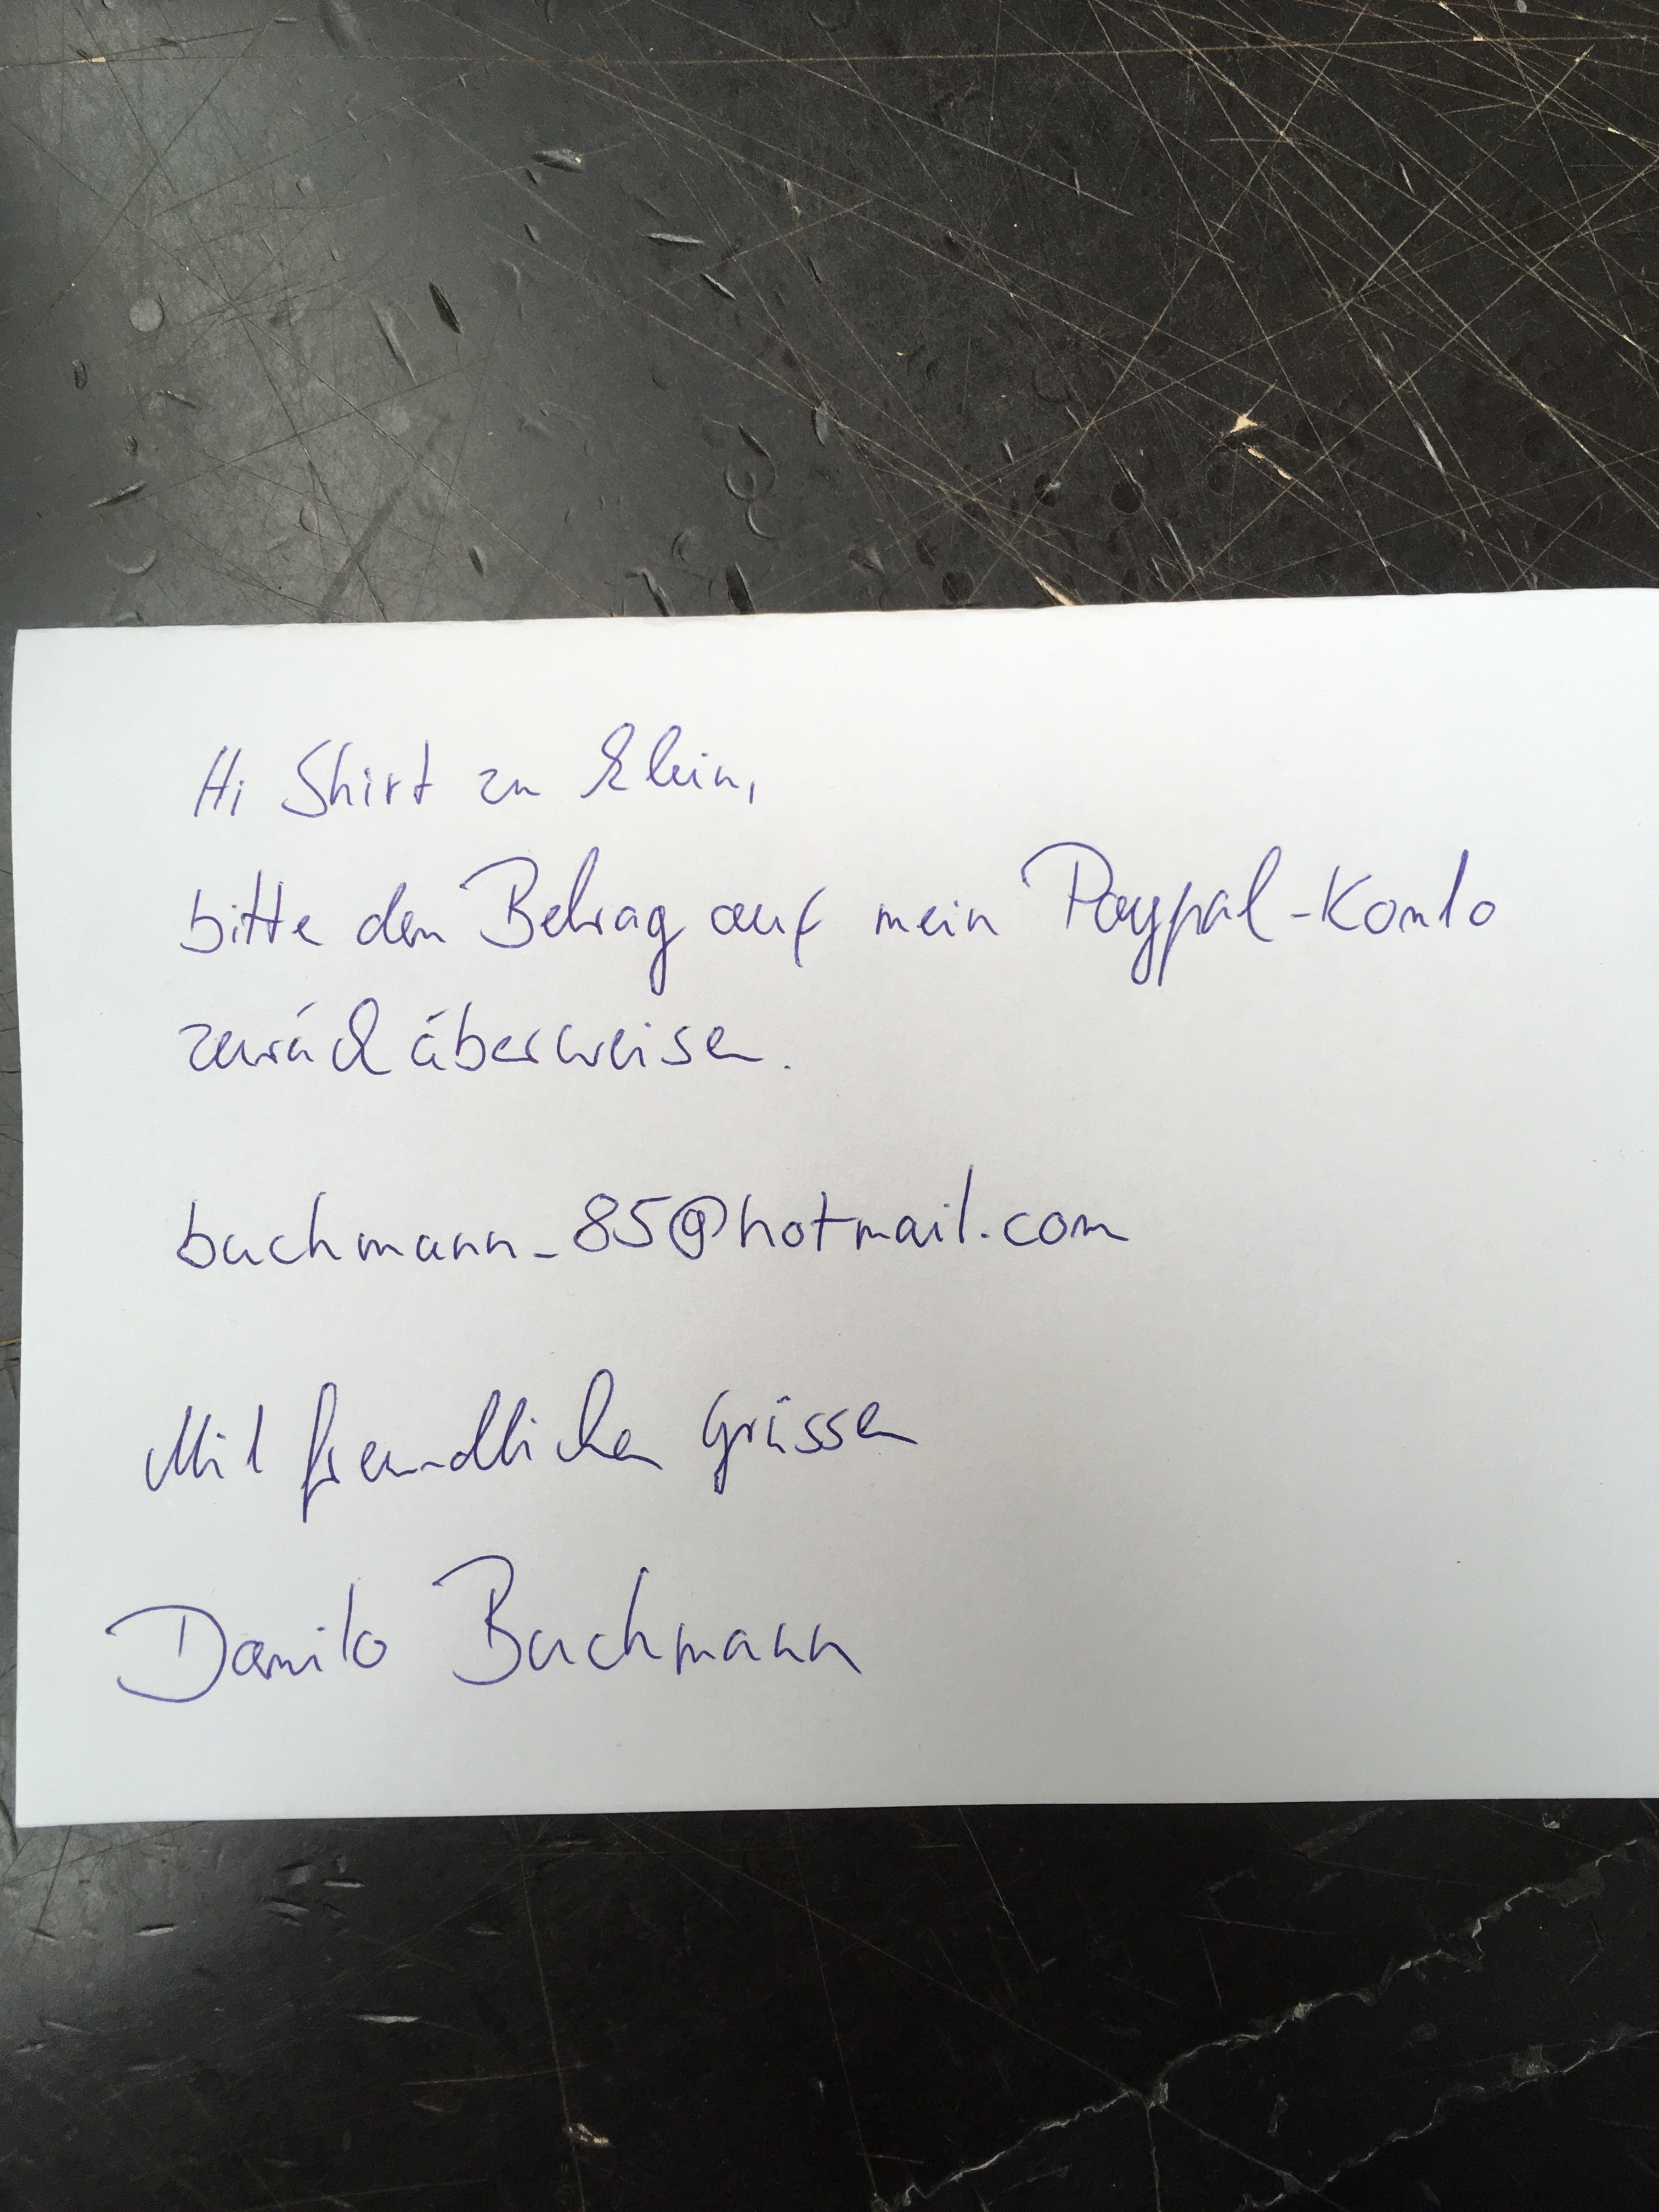 Hi Shirt zu klein,
bitte den Betrag auf mein Paypal-Konto
zurück überweisen.
bachmann_85@hotmail.com
Mit freundlichen Grüssen
Danilo Bachmann